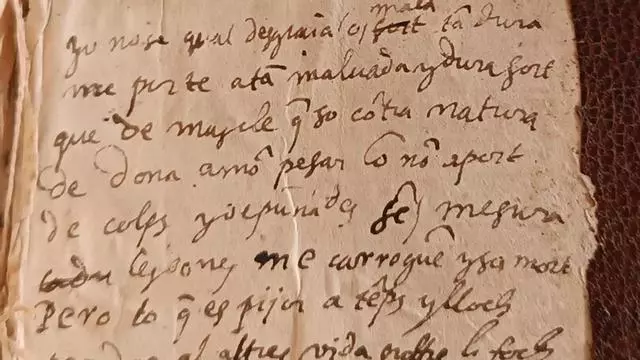 mala
yo no se qual desgracia o sort tā dura
me porte atā malvada y dura sort
que de muscle q̄ so cōtra natura
de dona amō pesar lo nō aport
de colps y de puña des sēs mesura
les ones me carreguē y so mort
Pero lo q̄ es pijor a tēps y lloch
al altres vida lo foch